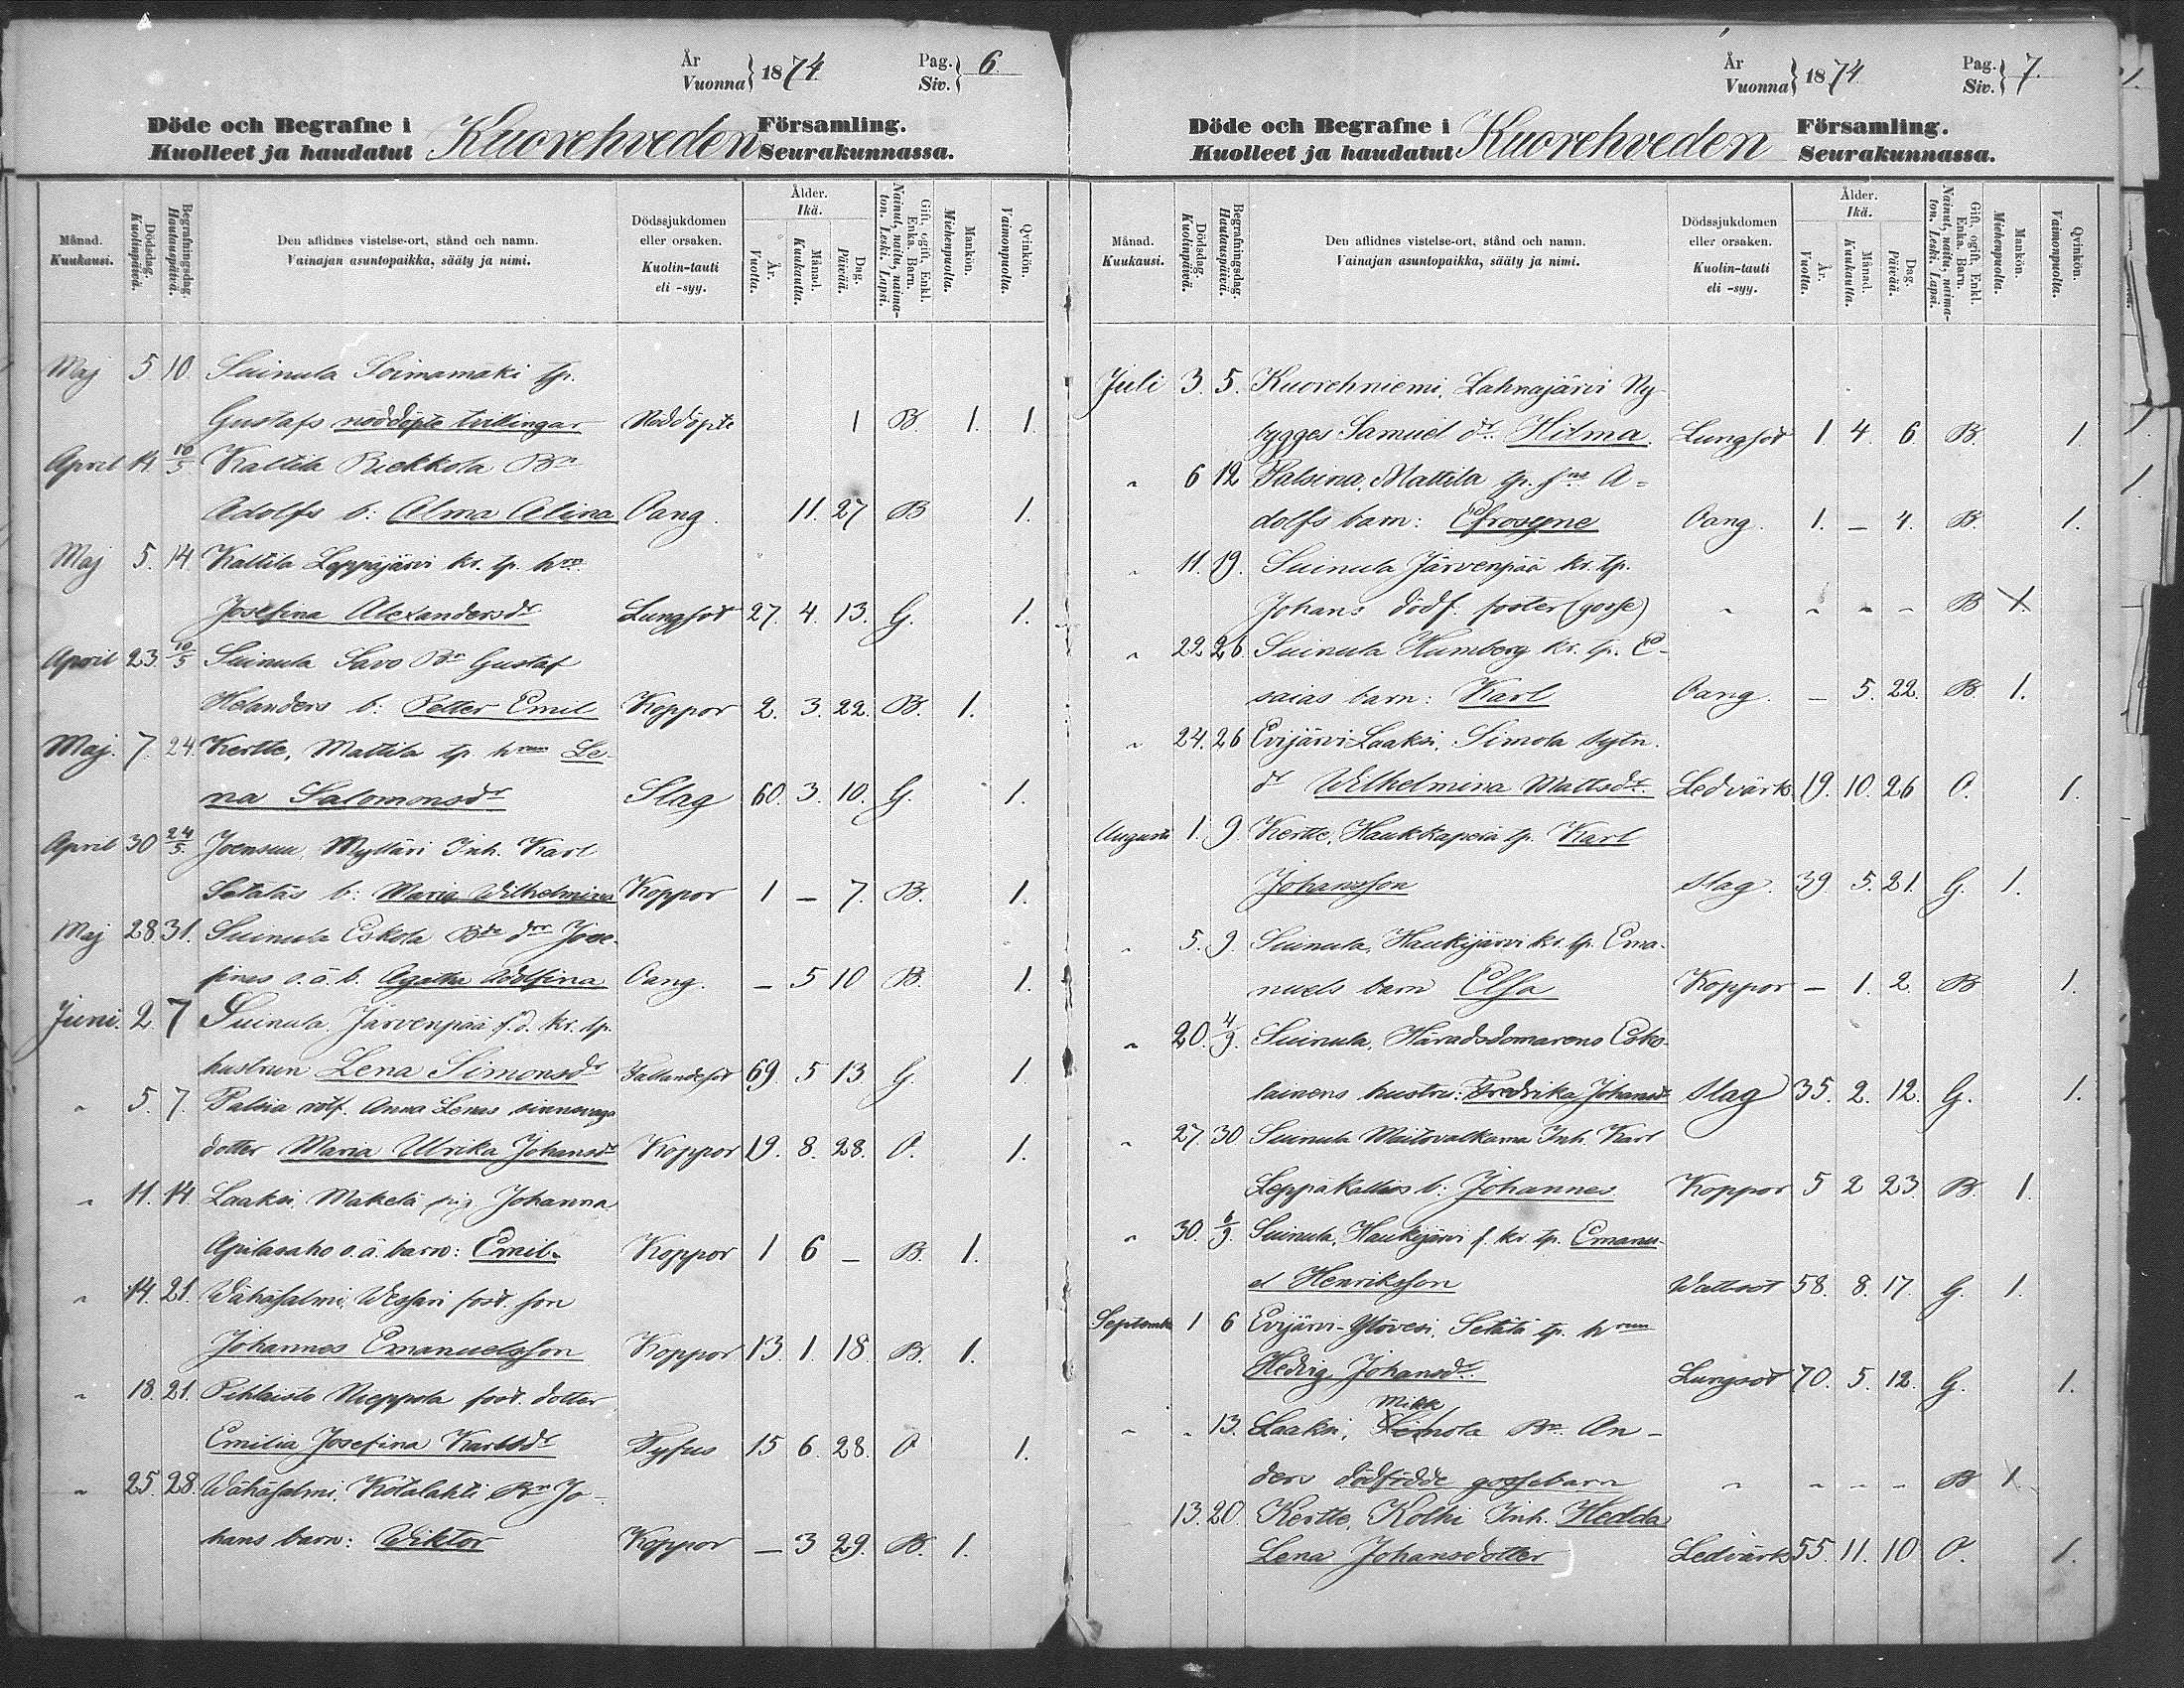 År
Vuonna } 1874. Pag. Siv. } 6.
Döde och Begrafne i Kuorehveden Församling.
Kuolleet ja haudatut Seurakunnassa.
Månad. Kuukausi. Dödsdag. Kuolinpäivä. Begrafningsdag. Hautauspäivä. Den aflidnes vistelse-ort, stånd och namn. Vainajan asuntopaikka, sääty ja nimi. Dödssjukdomen eller orsaken. Kuolin-tauti eli -syy. Ålder. Ikä. År. Vuotta. Månad. Kuukautta. Dag. Päivää. Gift, ogift, Enkl. Enka. Barn. Nainut, naitu, naimaton. Leski. Lapsi. Mankön. Miehenpuolta. Qvinkön. Vaimonpuolta.
Maj 5. 10. Suinula Soimamäki tp.
Gustafs nöddöpte tvillingar Nöddöpte 1 B. 1. 1.
April 14. 10/5 Kattila Riekkola Bn
Adolfs b: Alma Alina Oang. 11. 27 B 1.
Maj 5. 14. Kattila Leppäjärvi kr. tp. hro
Josefina Alexandersdr Lungsot 27. 4. 13. G. 1.
April 23. 10/5 Suinula Savo Bn Gustaf
Helanders b: Petter Emil Koppor 2. 3. 22. B. 1.
Maj. 7. 24. Kertte, Mattila tp. hrun Le-
na Salomonsdr Slag 60. 3. 10. G. 1.
April 30 24/5. Joensuu, Mylläri Inh. Karl
Setäläs b: Maria Wilhelmina Koppor 1 – 7. B. 1.
Maj 28. 31. Suinula Eskola Bdn drr Jose-
fines o. ä. b. Agatha Adolfina Oang. – 5 10 B. 1.
Juni. 2. 7 Suinula, Järvenpää f.d. kr. tp.
hustrun Lena Simonsdr Fallandesot 69. 5 13. G. 1.
" 5. 7. Palsia rotf. Anna Lenas sinnsvaga
dotter Maria Ulrika Johansdr Koppor 19. 8. 28. O. 1.
" 11. 14. Laaksi, Makelä pig. Johanna
Apilasaho o.ä. barn: Emil. Koppor 1 6 – B. 1.
" 14. 21. Wähäsalmi, Wessari fost. son
Johannes Emanuelsson Koppor. 13. 1. 18. B. 1.
" 18. 21. Pihlaisto Nieppola fost. dotter
Emilia Josefina Karlsdr Tyfus 15 6. 28. O 1.
" 25. 28. Wähäsalmi, Kotalahti Bn Jo-
hans barn: Wiktor Koppor – 3 29. B. 1.
År
Vuonna } 1874. Pag. Siv. } 7.
Döde och Begrafne i Kuorehveden Församling.
Kuolleet ja haudatut Seurakunnassa.
Månad. Kuukausi. Dödsdag. Kuolinpäivä. Begrafningsdag. Hautauspäivä. Den aflidnes vistelse-ort, stånd och namn. Vainajan asuntopaikka, sääty ja nimi. Dödssjukdomen eller orsaken. Kuolin-tauti eli -syy. Ålder. Ikä. År. Vuotta. Månad. Kuukautta. Dag. Päivää. Gift, ogift, Enkl. Enka. Barn. Nainut, naitu, naimaton. Leski. Lapsi. Mankön. Miehenpuolta. Qvinkön. Vaimonpuolta.
Juli 3. 5. Kuorehniemi, Lahnajärvi Ny-
bygges Samuel dr: Hilma. Lungsot 1. 4. 6 B. 1.
" 6 12 Palsina, Mattila tp. sns A-
dolfs barn: Efrosyne Oang. 1. – 4. B. 1.
" 11. 19. Suinula Järvenpää kr. tp.
Johans dödf. foster (gosse) " " " " B 1.
" 22. 26. Suinula Humberg kr. tp. E-
saias barn: Karl Oang. – 5. 22. B 1.
" 24. 26 Evijärvi-Laaksi, Simola sytn.
dr Wilhelmina Mattsdr. Ledvärk 19. 10. 26 O. 1.
Augusti 1. 9. Kertte, Haukkapeiä tp. Karl
Johansson Slag. 39. 5. 21. G. 1.
" 5. 9. Suinula, Haukijärvi kr. tp. Ema-
nuels barn Elsa Koppor – 1. 2. B 1.
" 20. 4/9. Suinula, Häradsdomarens Esko-
lainens hustru: Fredrika Johansdr Slag 35. 2. 12. G. 1.
" 27. 30 Suinula Maitovalkama Inh. Karl
Leppäkallios b: Johannes Koppor 5 2 23. B. 1.
" 30. 6/9. Suinula, Haukijärvi f. kr. tp. Emanu-
el Henriksson Wattsot 58. 8. 17. G. 1.
September 1 6 Evijärvi-Ylövesi, Setälä tp. hrun
Hedvig Johansdr. Lungsot 70. 5. 12. G. 1.
Mikk
" " 13. Laaksi, Simola Bn. An-
ders dödfödde gossebarn " " " " B 1.
13. 20. Kertte, Kolhi Inh. Hedda
Lena Johansdotter Ledvärk 55. 11. 10 O. 1.